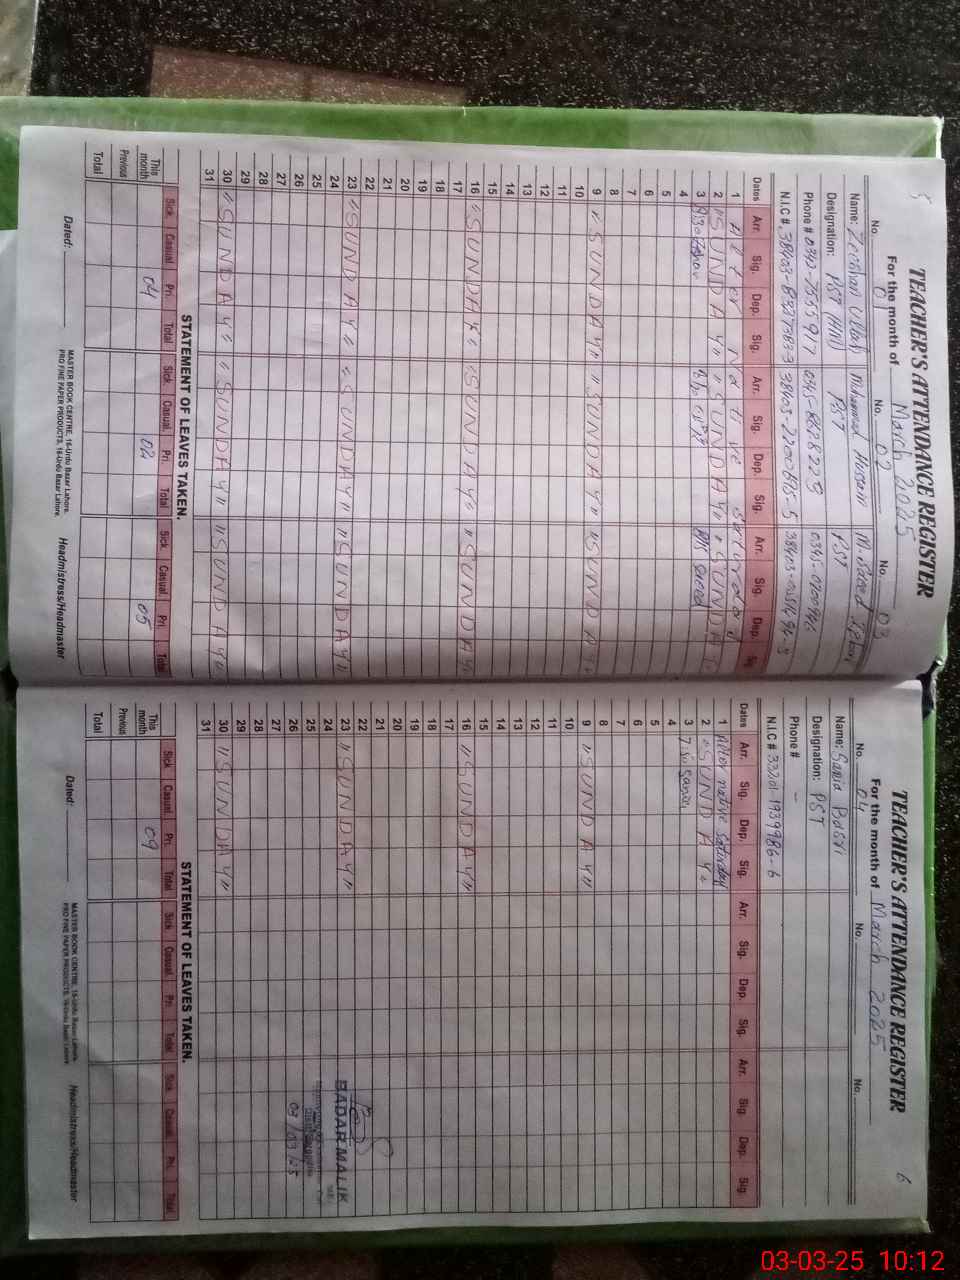 5
TEACHER'S ATTENDANCE REGISTER
For the month of March 2025
No. 01 No. 02 No. 03
Name: Zeeshan Ullah Muhammad Hussain M. Saeed
Designation: PST (HM) PST PST
Phone # 0345-8628225
N.I.C #
Dates Arr. Sig. Dep. Sig. Arr. Sig. Dep. Sig. Arr. Sig. Dep. Sig.
1 Alter Native Saturday
2 "SUNDAY" "SUNDAY" "SUNDAY"
3 Saeed
4
5
6
7
8
9 "SUNDAY" "SUNDAY" "SUNDAY"
10
11
12
13
14
15
16 "SUNDAY" "SUNDAY" "SUNDAY"
17
18
19
20
21
22
23 "SUNDAY" "SUNDAY" "SUNDAY"
24
25
26
27
28
29
30 "SUNDAY" "SUNDAY" "SUNDAY"
31
STATEMENT OF LEAVES TAKEN.
Sick Casual Pri. Total Sick Casual. Pri. Total Sick Casual. Pri. Total
This month 04 02 05
Previous
Total
MASTER BOOK CENTRE, 16-Urdu Bazar Lahore.
PRO FINE PAPER PRODUCTS, 16-Urdu Bazar Lahore.
Dated: Headmistress/Headmaster
6
TEACHER'S ATTENDANCE REGISTER
For the month of March 2025
No. 04 No. No.
Name: Sania Batool
Designation: PST
Phone # -
N.I.C # 33201-1939986-6
Dates Arr. Sig. Dep. Sig. Arr. Sig. Dep. Sig. Arr. Sig. Dep. Sig.
1 Alter native saturday
2 "SUNDAY"
3 7:50 Sania
4
5
6
7
8
9 "SUNDAY"
10
11
12
13
14
15
16 "SUNDAY"
17
18
19
20
21
22
23 "SUNDAY"
24
25
26
27
28
29
30 "SUNDAY"
31
BADAR MALIK
03/03/25
STATEMENT OF LEAVES TAKEN.
Sick Casual. Pri. Total Sick Casual. Pri. Total Sick Casual. Pri. Total
This month 09
Previous
Total
MASTER BOOK CENTRE, 16-Urdu Bazar Lahore.
PRO FINE PAPER PRODUCTS, 16-Urdu Bazar Lahore.
Dated: Headmistress/Headmaster
03-03-25 10:12